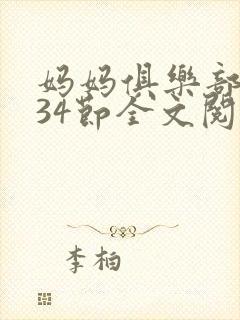 妈妈俱樂部
34節全文閱
李柏